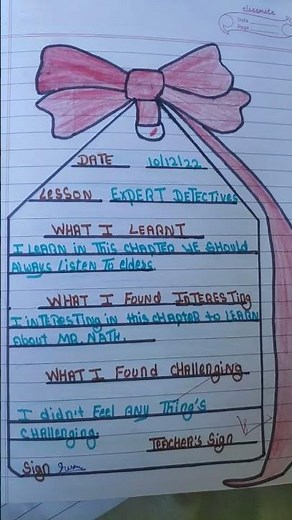 classmate
Date
Page
DATE 10/12/22
LESSON EXPERT DETECTIVES
WHAT I LEARNT
I LEARN IN THIS CHAPTER WE SHOULD
ALWAYS LISTEN TO elders.
WHAT I FOUND INTERESTING
I INTERESTING in this CHAPTER to LEARN
About MR. NATH.
WHAT I Found cHAllenging
I didn't Feel ANY THing's
CHAllenging.
TEACHER'S Sign
Sign